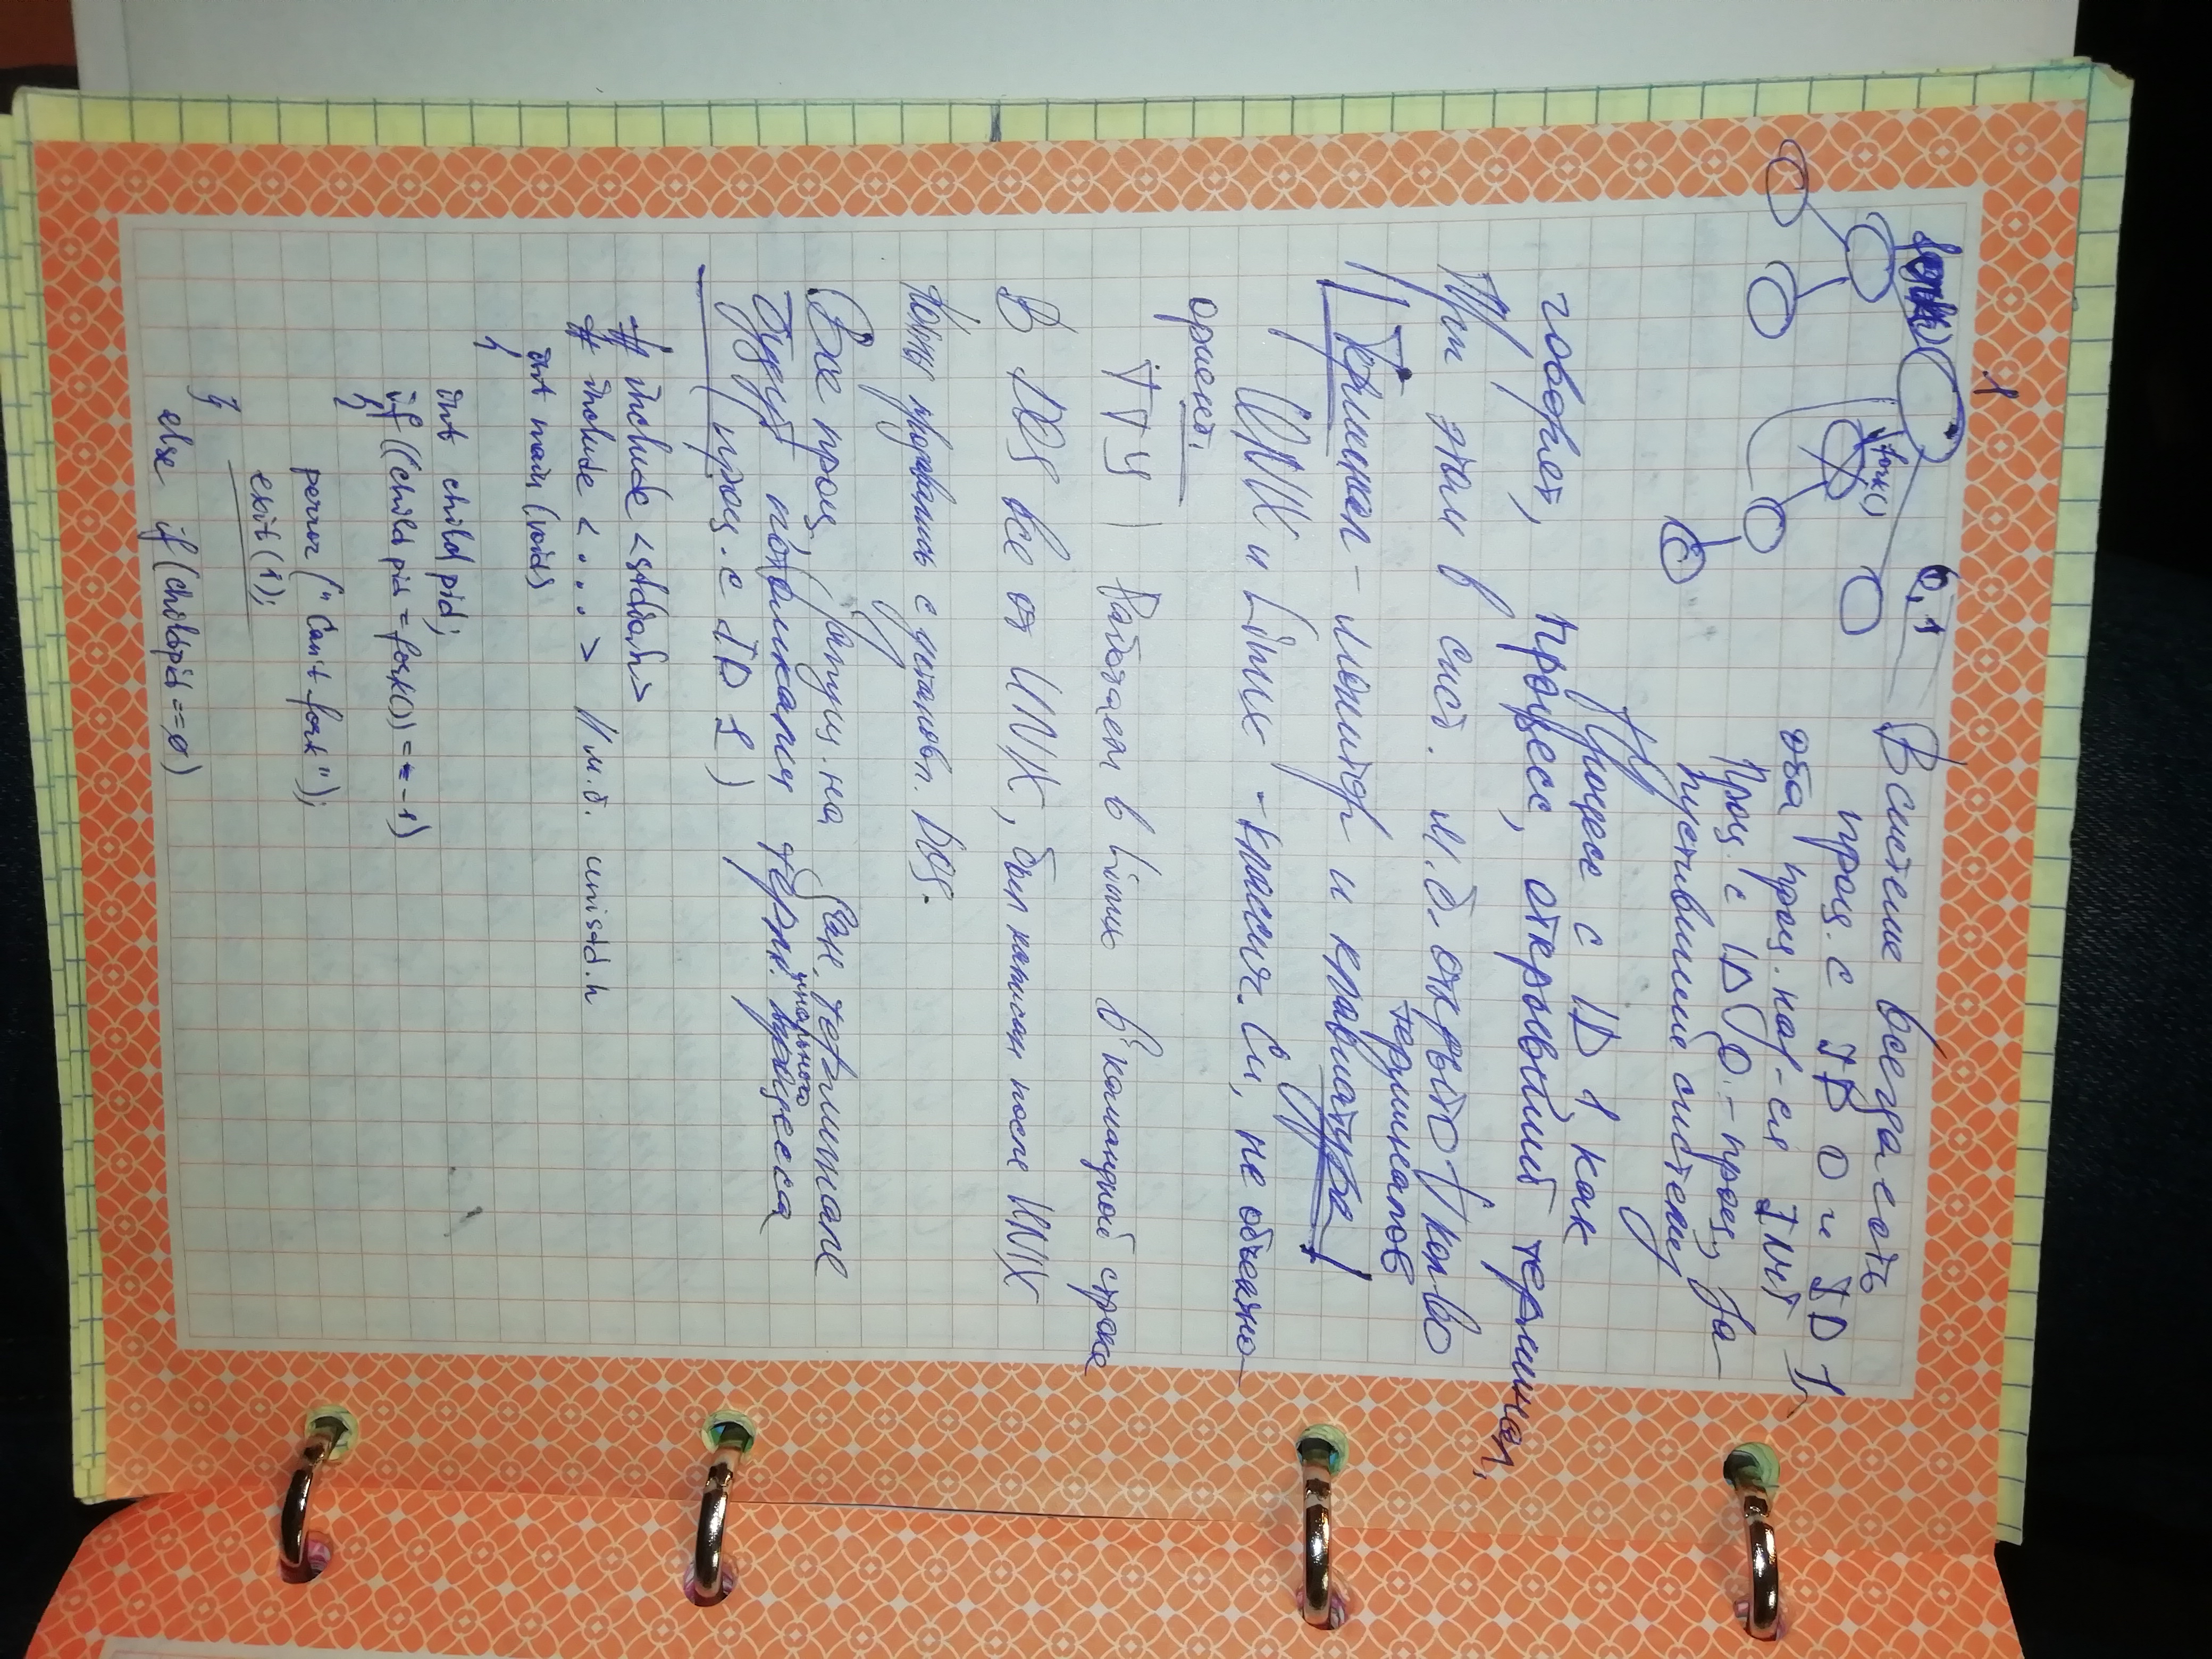 1
fork()
0, 1
fork()
В системе всегда есть
проц. с ID 0 и ID 1,
оба проц. наз-ся INIT
Проц. с ID 0 - проц., за-
пустивший систему
Процесс с ID 1, как
говорят, процесс, открывший терминал,
При этом в сист. м.б. открыто ∀ кол-во
терминалов
Терминал - монитор и клавиатура
UNIX и Linux - классич. Си, не объектно-
ориент.
TTY | Работаем в Linux в командной строке
В DOS все от UNIX, был написан после UNIX
Компы продавались с установл. DOS.
Все проц., запущ. на дан. терминале
будут потомками терминального процесса
(проц. с ID 1)
# include <stdio.h>
# include <...> // м.б. unistd.h
int main (void)
{
int child pid;
if ((child pid = fork()) == -1)
{
perror ("Can't fork");
exit (1);
}
else if (childpid == 0)